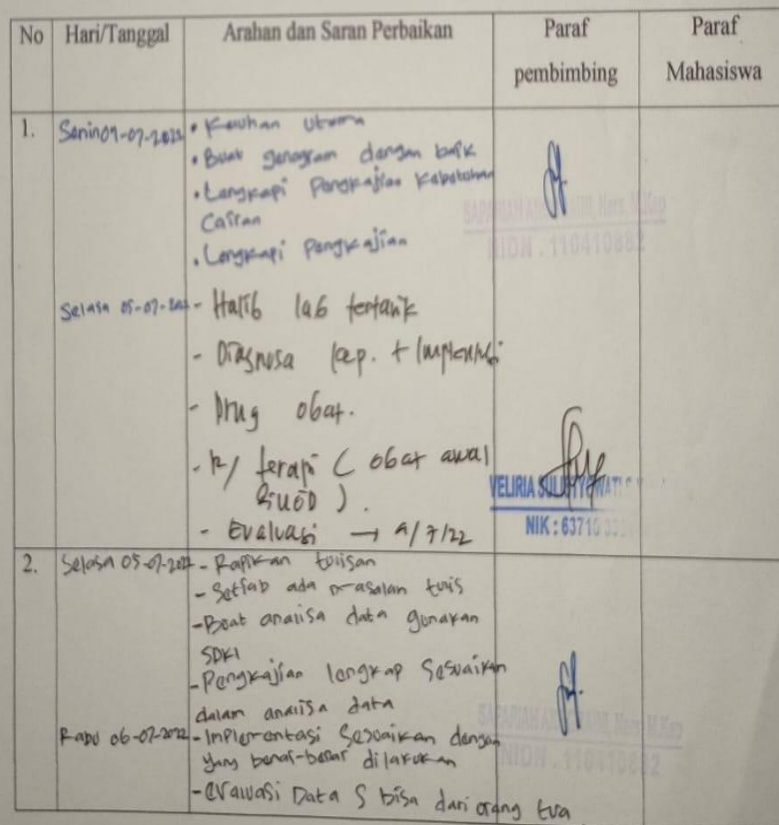 No Hari/Tanggal Arahan dan Saran Perbaikan Paraf pembimbing Paraf Mahasiswa
1. Senin 04-07-2022 • Keluhan utama
• Buat genogram dengan baik
• Lengkapi Pengkajian Kebutuhan
Cairan
• Lengkapi Pengkajian
NIDN . 110410882
Selasa 05-07-2022 - Hasil lab terbaik
- Diagnosa kep. + Implentasi
- Drug obat.
- R/ terapi ( obat awal
).
VELIRIA
- Evaluasi → 4/7/22
NIK : 63710
2. Selasa 05-07-2022 - Rapikan tulisan
- Setiap ada masalah tulis
- Buat analisa data gunakan
SDKI
- Pengkajian lengkap Sesuaikan
dalam analisa data
Rabu 06-07-2022 - Implementasi Sesuaikan dengan
yang benar-benar dilakukan
NIDN . 110410882
- evaluasi Data S bisa dari orang tua